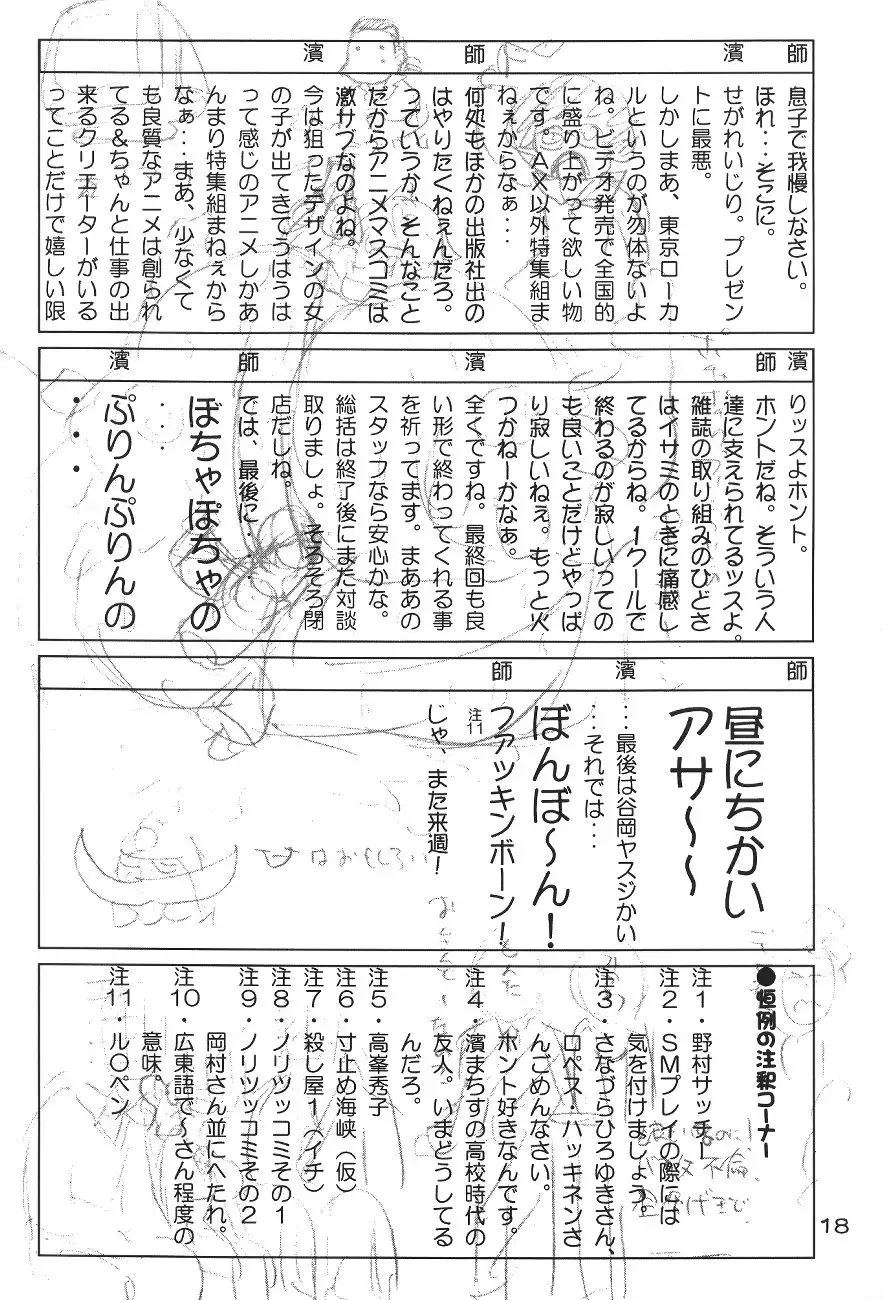 師
濱
師
濱
息子で我慢しなさい。
ほれ...そこに。
せがれいじり。プレゼン
トに最悪。
しかしまあ、東京ローカ
ルというのが勿体ないよ
ね。ビデオ発売で全国的
に盛り上がって欲しい物
です。AX以外特集組ま
ねぇからなぁ...
何処もほかの出版社出の
はやりたくねぇんだろ。
っていうか、そんなこと
だからアニメマスコミは
激サブなのよね。
今は狙ったデザインの女
の子が出てきてうはうは
って感じのアニメしかあ
んまり特集組まねぇから
なぁ...まあ、少なくて
も良質なアニメは創られ
てる&ちゃんと仕事の出
来るクリエーターがいる
ってことだけで嬉しい限
濱
師
濱
師
濱
りッスよホント。
ホントだね。そういう人
達に支えられてるッスよ。
雑誌の取り組みのひどさ
はイサミのときに痛感し
てるからね。1クールで
終わるのが寂しいっての
も良いことだけどやっぱ
り寂しいねぇ。もっと火
つかねーかなあ。
全くですね。最終回も良
い形で終わってくれる事
を祈ってます。まああの
スタッフなら安心かな。
総括は終了後にまた対談
取りましょ。そろそろ閉
店だしね。
では、最後に...
ぼちゃぽちゃの
...
ぷりんぷりんの
...
師
濱
師
昼にちかい
アサ〜〜
...最後は谷岡ヤスジかい
...それでは...
ぼんぼ〜ん!
注11
ファッキンボーン!
じゃ、また来週!
はおもしろい
●恒例の注釈コーナー
注1・野村サッチー
注2・SMプレイの際には
気を付けましょう。
注3・さなづらひろゆきさん、
ロペス・ハッキネンさ
んごめんなさい。
ホント好きなんです。
注4・濱まちすの高校時代の
友人。いまどうしてる
んだろ。
注5・高峯秀子
注6・寸止め海峡(仮)
注7・殺し屋1(イチ)
注8・ノリツッコミその1
注9・ノリツッコミその2
岡村さん並にへたれ。
注10・広東語で〜さん程度の
意味。
注11・ル○ペン
18